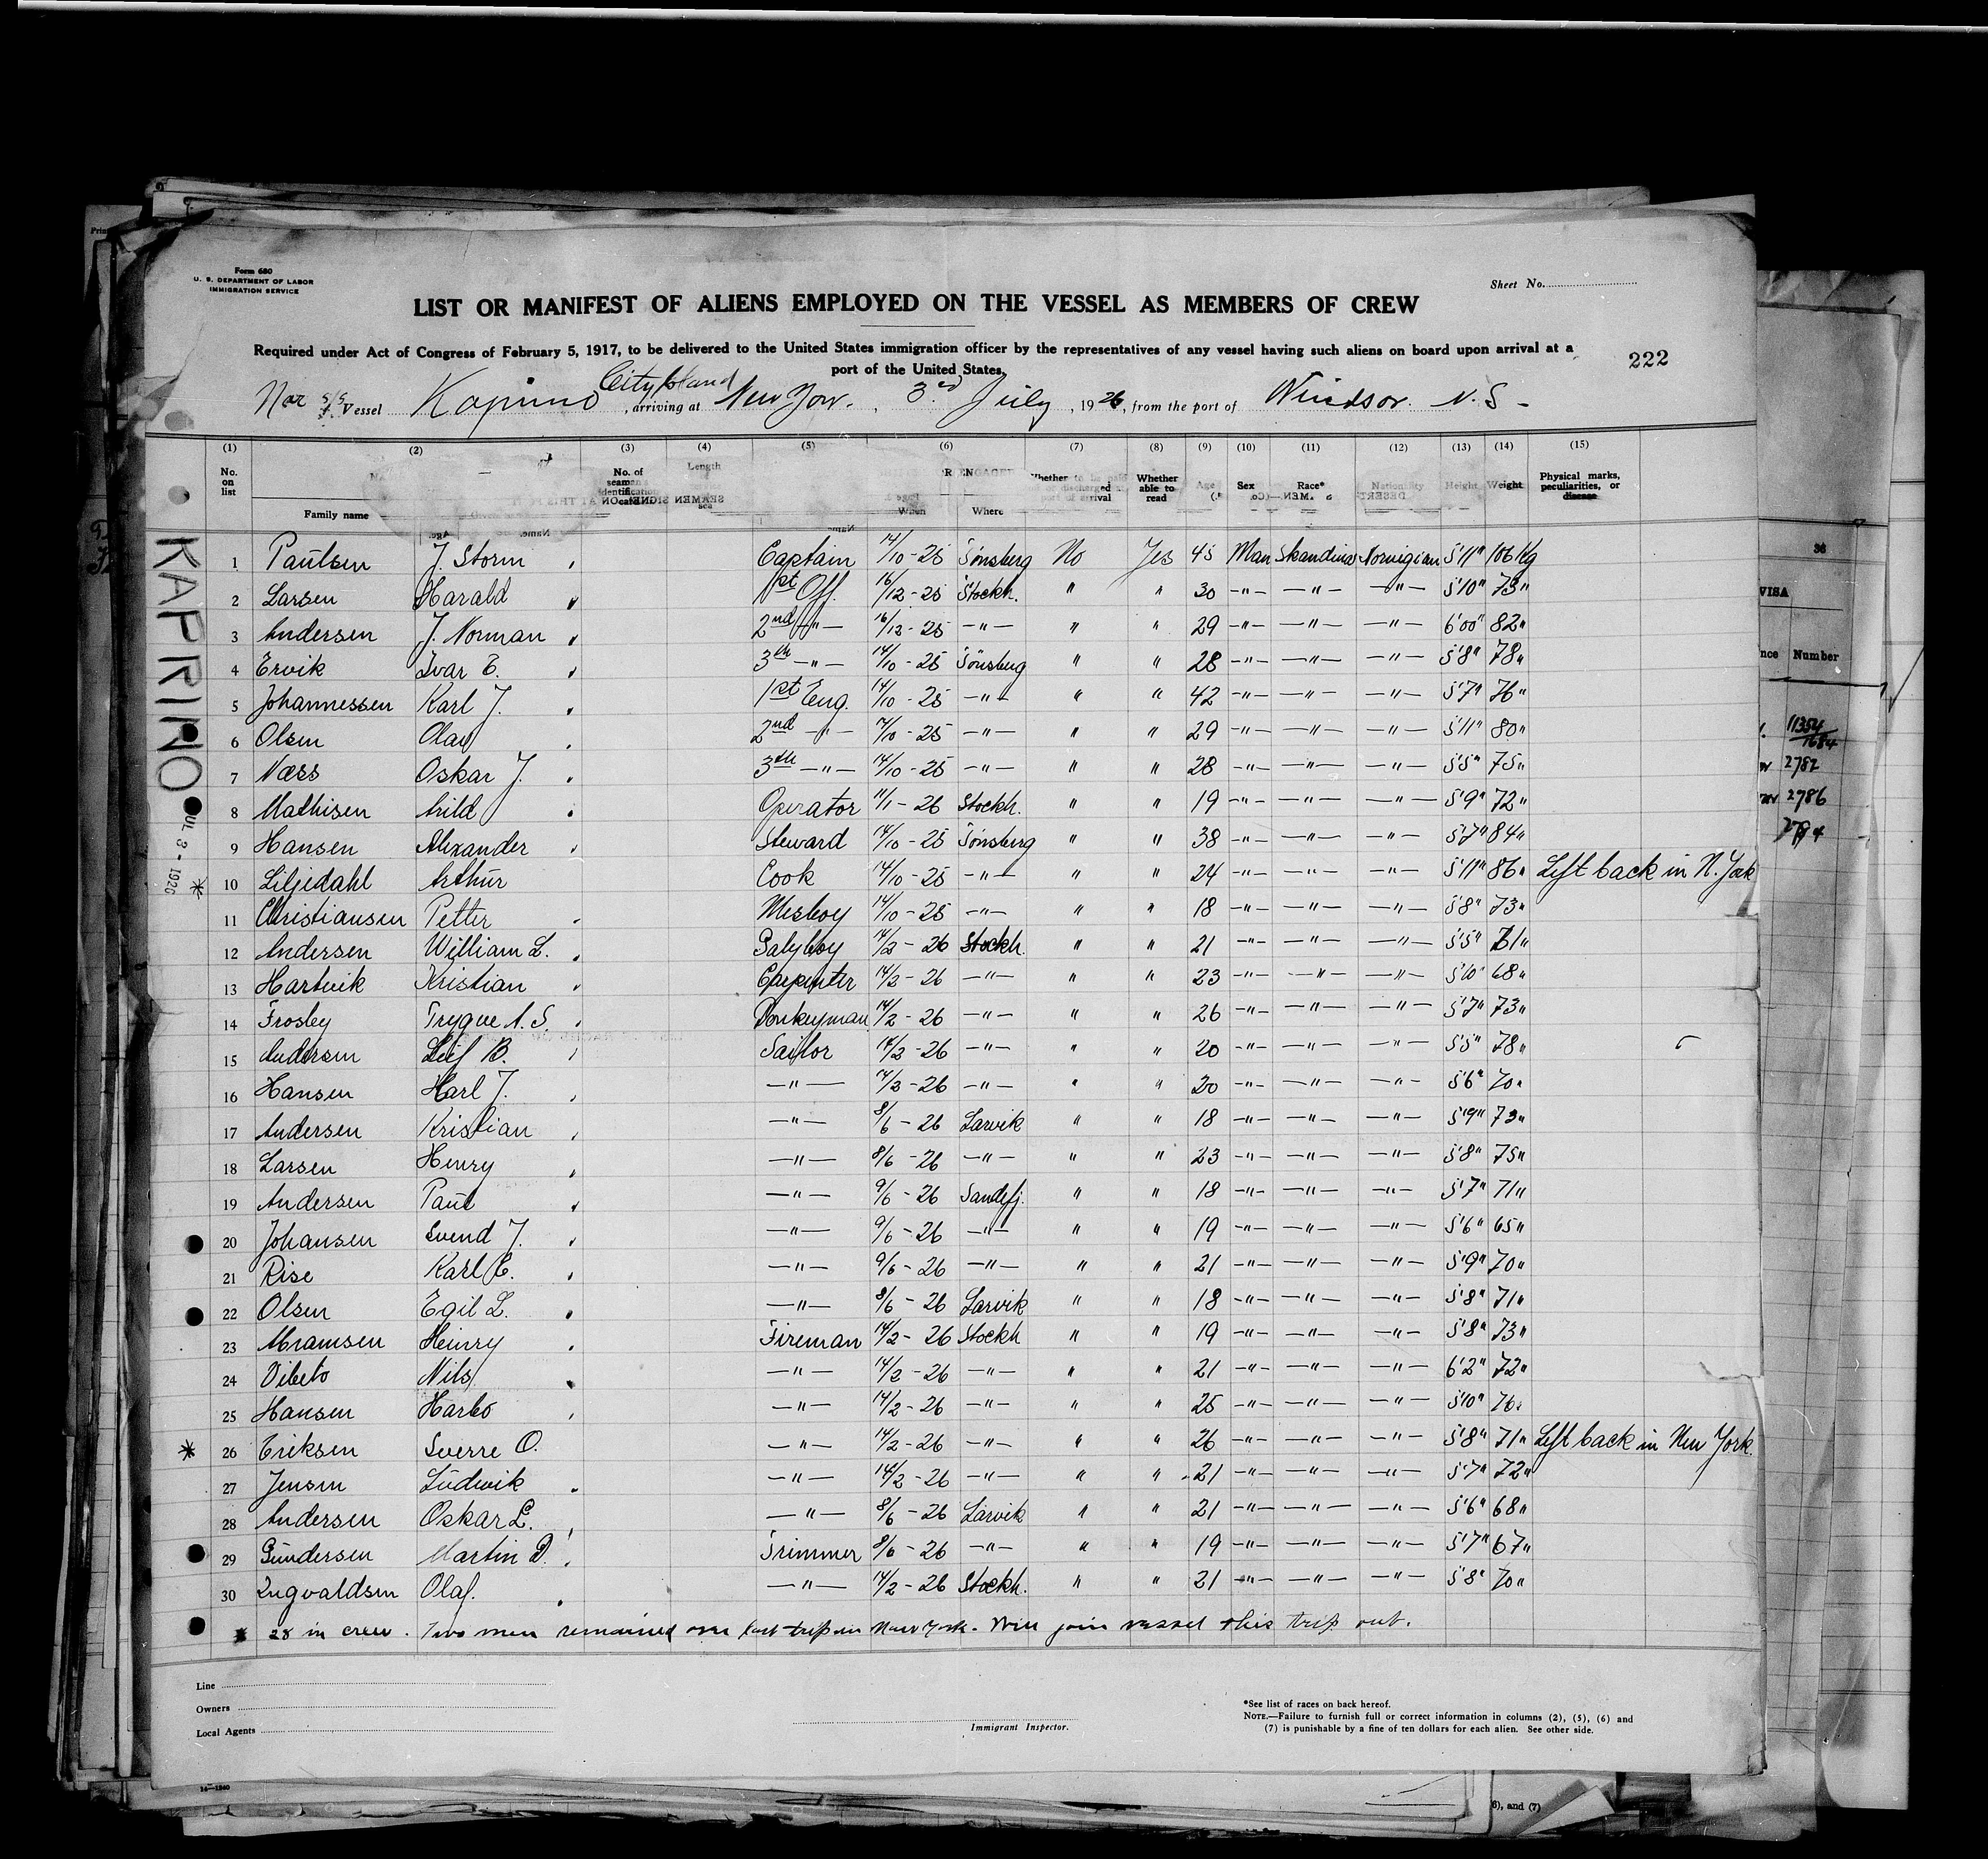 Form 680
U. S. DEPARTMENT OF LABOR
IMMIGRATION SERVICE
Sheet No.
LIST OR MANIFEST OF ALIENS EMPLOYED ON THE VESSEL AS MEMBERS OF CREW
Required under Act of Congress of February 5, 1917, to be delivered to the United States immigration officer by the representatives of any vessel having such aliens on board upon arrival at a
port of the United States
222
Nor s/s Vessel Kaprino, arriving at New Yor. City Island, 3rd July, 1926, from the port of Windsor. N. S -
(1) (2) (3) (4) (5) (6) (7) (8) (9) (10) (11) (12) (13) (14) (15)
No. on list Family name No. of seaman's identification card Length When Where Whether to be paid or discharged port of arrival Whether able to read Age Sex Race* Nationality Height Weight Physical marks, peculiarities, or disease
KAPRINO
JUL 3 - 1926
1 Paulsen J. Storm Captain 14/10-25 Tönsberg No Yes 45 Man Skandinav Norwigian 5'11" 106 Kg
2 Larsen Harald 1st Off. 16/12-25 Stockh. " " 30 -"- -"- -"- 5'10" 73"
3 Andersen J. Norman 2nd -"- 16/12-25 -"- " " 29 -"- -"- -"- 6'00" 82"
4 Ervik Ivar E. 3th -"- 14/10-25 Tönsberg " " 28 -"- -"- -"- 5'8" 78"
5 Johannessen Karl J. 1st Eng. 14/10-25 -"- " " 42 -"- -"- -"- 5'7" 76"
6 Olsen Olav 2nd -"- 14/10-25 -"- " " 29 -"- -"- -"- 5'11" 80"
7 Næss Oskar J. 3th -"- 14/10-25 -"- " " 28 -"- -"- -"- 5'5" 75"
8 Mathisen Arild Operator 11/1-26 Stockh. " " 19 -"- -"- -"- 5'9" 72"
9 Hansen Alexander Steward 14/10-25 Tönsberg " " 38 -"- -"- -"- 5'7" 84"
* 10 Liljedahl Arthur Cook 14/10-25 -"- " " 24 -"- -"- -"- 5'11" 86" Left back in N. York
11 Christiansen Petter Mesboy 14/10-25 -"- " " 18 -"- -"- -"- 5'8" 73"
12 Andersen William L. Galyboy 14/2-26 Stockh. " " 21 -"- -"- -"- 5'5" 61"
13 Hartvik Kristian Carpenter 14/2-26 -"- " " 23 -"- -"- -"- 5'10" 68"
14 Frosley Trygve A. S. Donkeyman 14/2-26 -"- " " 26 -"- -"- -"- 5'7" 73"
15 Andersen Leif B. Sailor 14/2-26 -"- " " 20 -"- -"- -"- 5'5" 78"
16 Hansen Harl J. -"- 14/2-26 -"- " " 20 -"- -"- -"- 5'6" 70"
17 Andersen Kristian -"- 8/6-26 Larvik " " 18 -"- -"- -"- 5'9" 73"
18 Larsen Henry -"- 8/6-26 -"- " " 23 -"- -"- -"- 5'8" 75"
19 Andersen Paul -"- 9/6-26 Sandefj. " " 18 -"- -"- -"- 5'7" 71"
20 Johansen Svend J. -"- 9/6-26 -"- " " 19 -"- -"- -"- 5'6" 65"
21 Rise Karl E. -"- 9/6-26 -"- " " 21 -"- -"- -"- 5'9" 70"
22 Olsen Egil L. -"- 8/6-26 Larvik " " 18 -"- -"- -"- 5'8" 71"
23 Abramsen Heinry Fireman 14/2-26 Stockh " " 19 -"- -"- -"- 5'8" 73"
24 Vibeto Nils -"- 14/2-26 -"- " " 21 -"- -"- -"- 6'2" 72"
25 Hansen Harbo -"- 14/2-26 -"- " " 25 -"- -"- -"- 5'10" 76"
* 26 Eriksen Sverre O. -"- 14/2-26 -"- " " 26 -"- -"- -"- 5'8" 71" Left back in New York.
27 Jensen Ludvik -"- 14/2-26 -"- " " 21 -"- -"- -"- 5'7" 72"
28 Andersen Oskar L. -"- 8/6-26 Larvik " " 21 -"- -"- -"- 5'6" 68"
29 Gundersen Martin D. Trimmer 8/6-26 -"- " " 19 -"- -"- -"- 5'7" 67"
30 Ingvaldsen Olaf. -"- 14/2-26 Stockh. " " 21 -"- -"- -"- 5'8" 70"
* 28 in crew. Two men remained over last trip in New York. Will join vessel this trip out.
Line
Owners
Local Agents
Immigrant Inspector.
*See list of races on back hereof.
NOTE.—Failure to furnish full or correct information in columns (2), (5), (6) and
(7) is punishable by a fine of ten dollars for each alien. See other side.
14—1240
6), and (7)
36
VISA
Number
11354
1684
2782
2786
2794